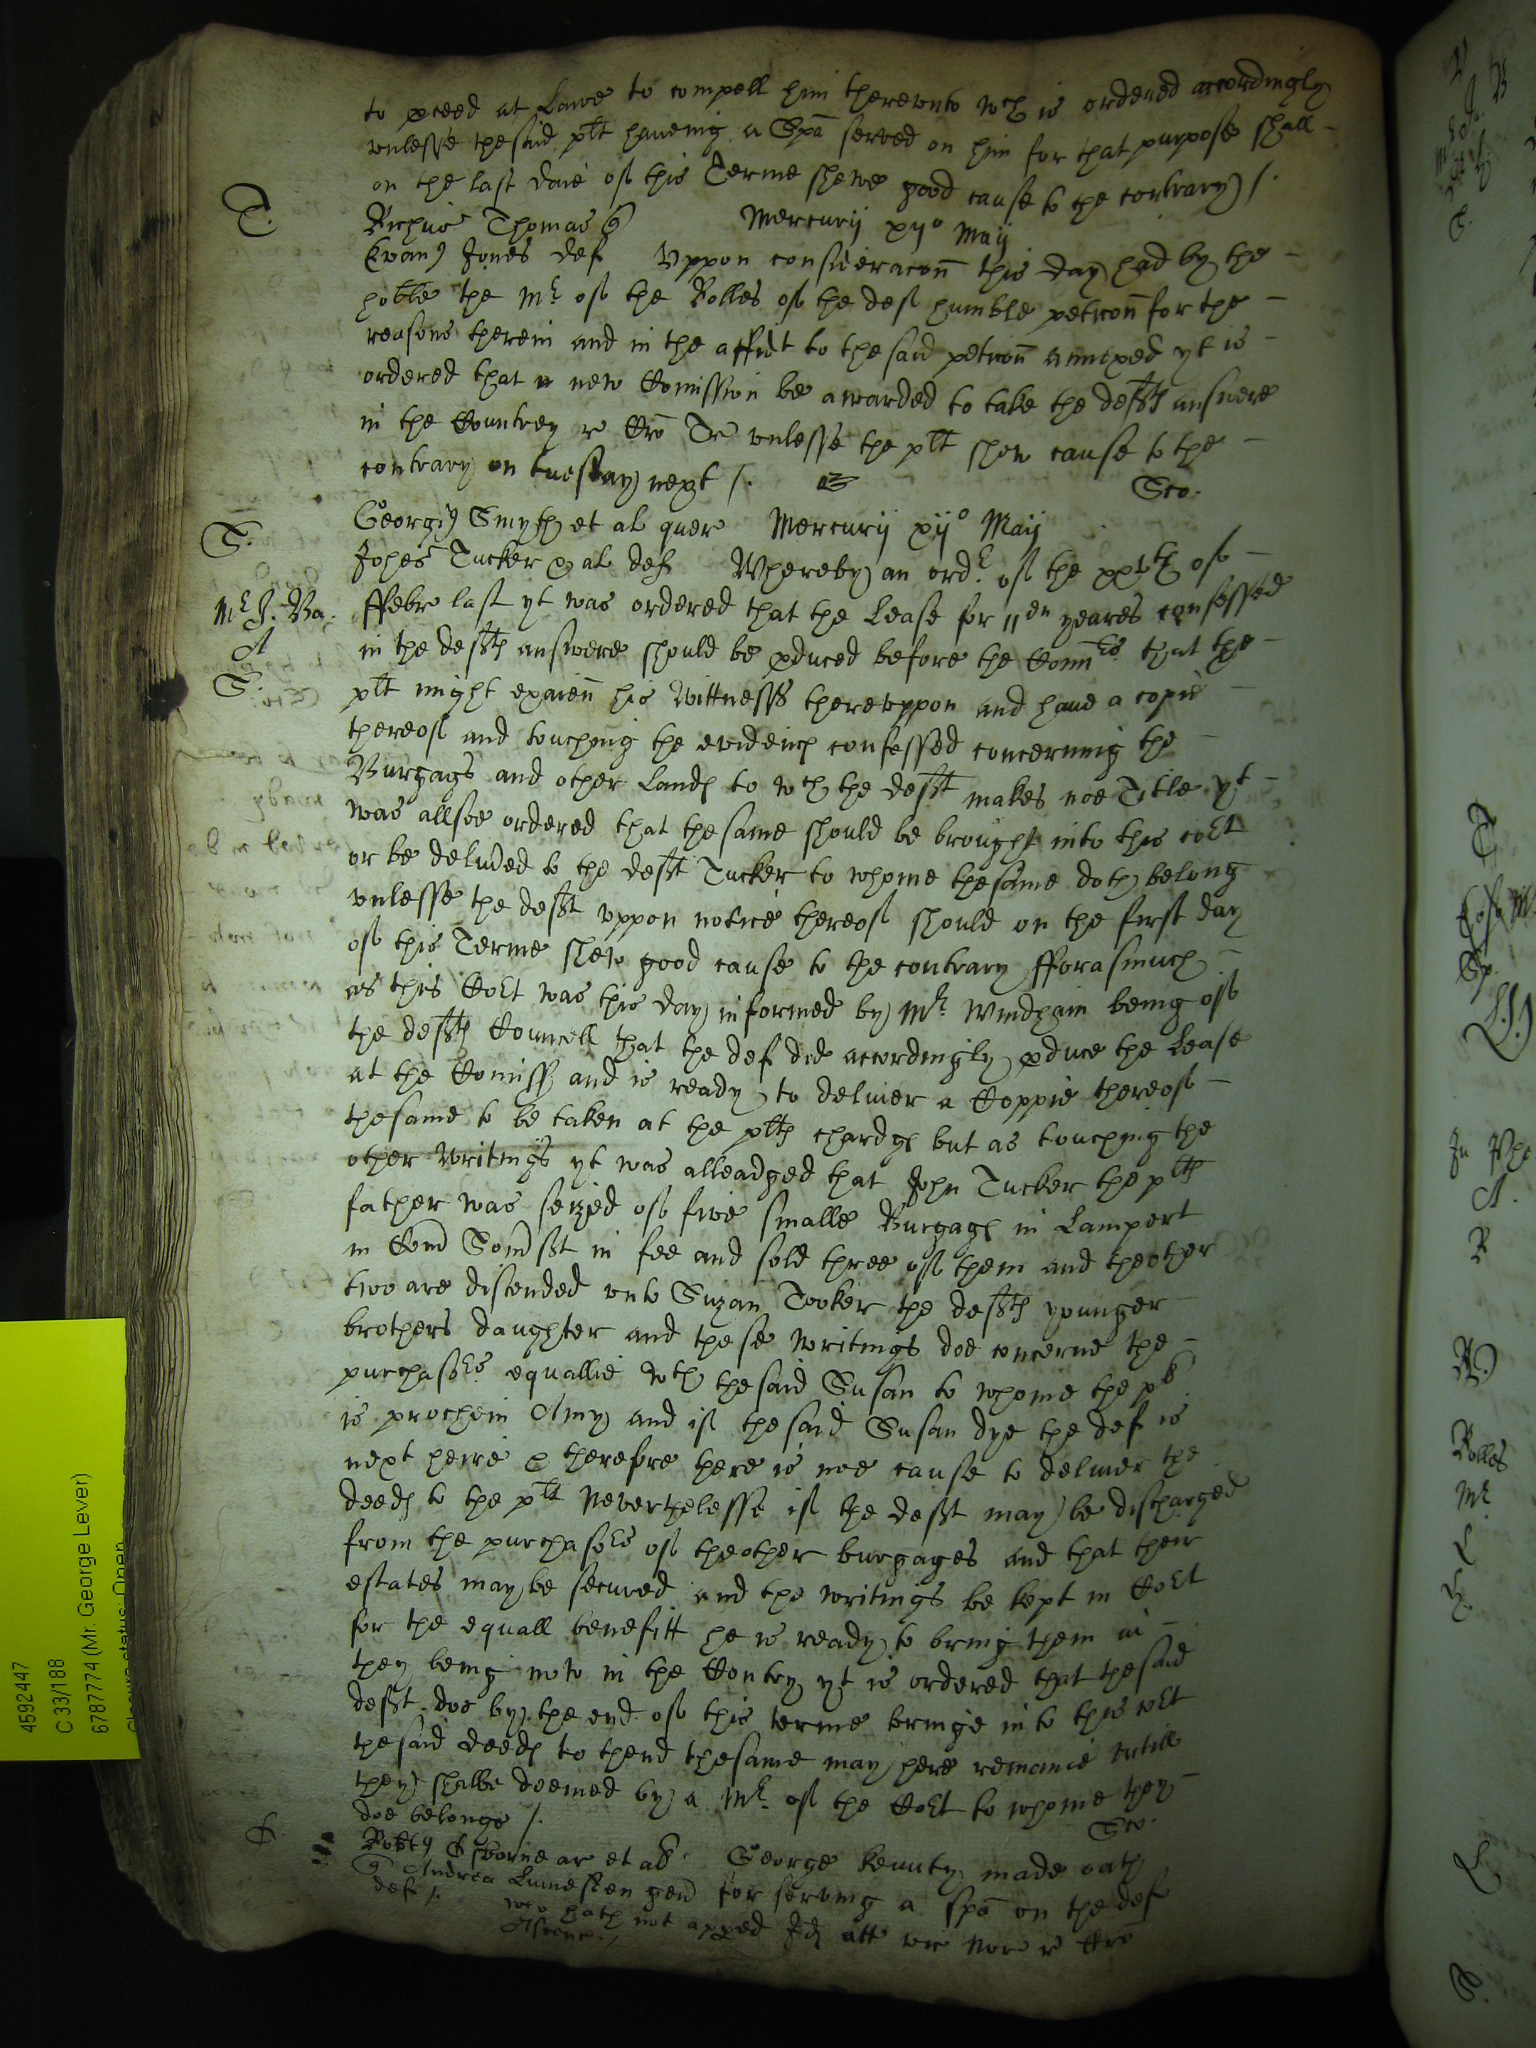 to pceed at Lawe to compell him therevnto wch is ordered accordingly
vnlesse the said plt haueing a Spā served on him for that purpose shall
on the last daie of this Terme shewe good cause to the contrary /.
T.
Richus Thomas Mercurij xijo Maij
Evan9 Jones def Vppon consideracon this day had by the
hoble the Mr of the Rolles of the def humble peticon for the
reasons therein and in the affidt to the said peticon annexed yt is
ordered that a new Comission be awarded to take the deftes answere
in the Countrey vnlesse the plt shew cause to the
contrary on tuesday next /.
Georgi9 Smyth et al quer Mercurij xijo Maij
S.
Johes Tucker et al def Whereby an ordr of the xxvth of
Mr J. Ba.
ffebr last yt was ordered that the Lease for 11en yeares confessed
A
in the deftes answere should be pduced before the Comrs that the
S.
plt might examin his Wittnesses therevppon and haue a copie
thereof and touching the evidence confessed concerning the
Burgags and other Landes to wch the deft makes noe Title yt
was allsoe ordered that the same should be brought into this cort
or be deliued to the deft Tucker to whome the same doth belong
vnlesse the deft vppon notice thereof should on the first day
of this Terme shew good cause to the contrary fforasmuch
as this Cort was this day informed by Mr Windham being of
the deftes Councell that the def did accordingly pduce the Lease
at the Comiss and is ready to deliuer a Coppie thereof
the same to be taken at the pltes chardges but as touching the
other Writings yt was alleadged that John Tucker the pltes
father was seized of five smalle Burgages in Lamport
in Com Somst in fee and sold three of them and theother
two are discended vnto Suzan Tooker the deftes younger
brothers daughter and these writings doe concerne the
purchasers equallie wth the said Susan to whome the pl
is prochein Amy and if the said Susan dye the def is
next heire & therefore there is noe cause to deliuer the
deedes to the plt Neverthelesse if the deft may be discharged
from the purchasers of theother burgages and that their
estates may be secured and the writings be kept in Cort
for the equall benefitt he is ready to bring them in
they being now in the Contry yt is ordered that the said
deft doe by the end of this terme bringe into this cort
the said deedes to thend the same may here remaine vntill
they shalbe deemed by a Mr of the Cort to whome they
doe belonge /.
Robt9 Osborne ar et al George made oath
Andrea gen for serving a spā on the def
def /. who hath not apped att
4592447
C 33/188
6787774 (Mr. George Lever)
Closure status: Open
Rolles
Mr